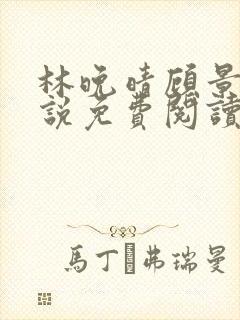 林晚晴顾景
說免費閱讀
馬丁·弗瑞曼